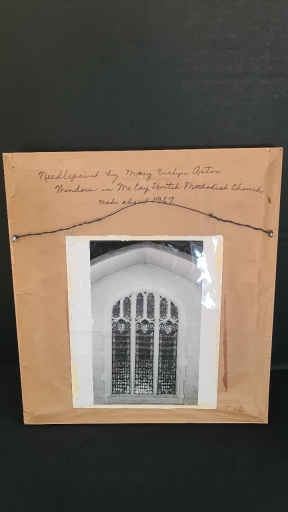 Needlepoint by Mary Evelyn Aston
Window in McCoy United Methodist Church
made about 1967